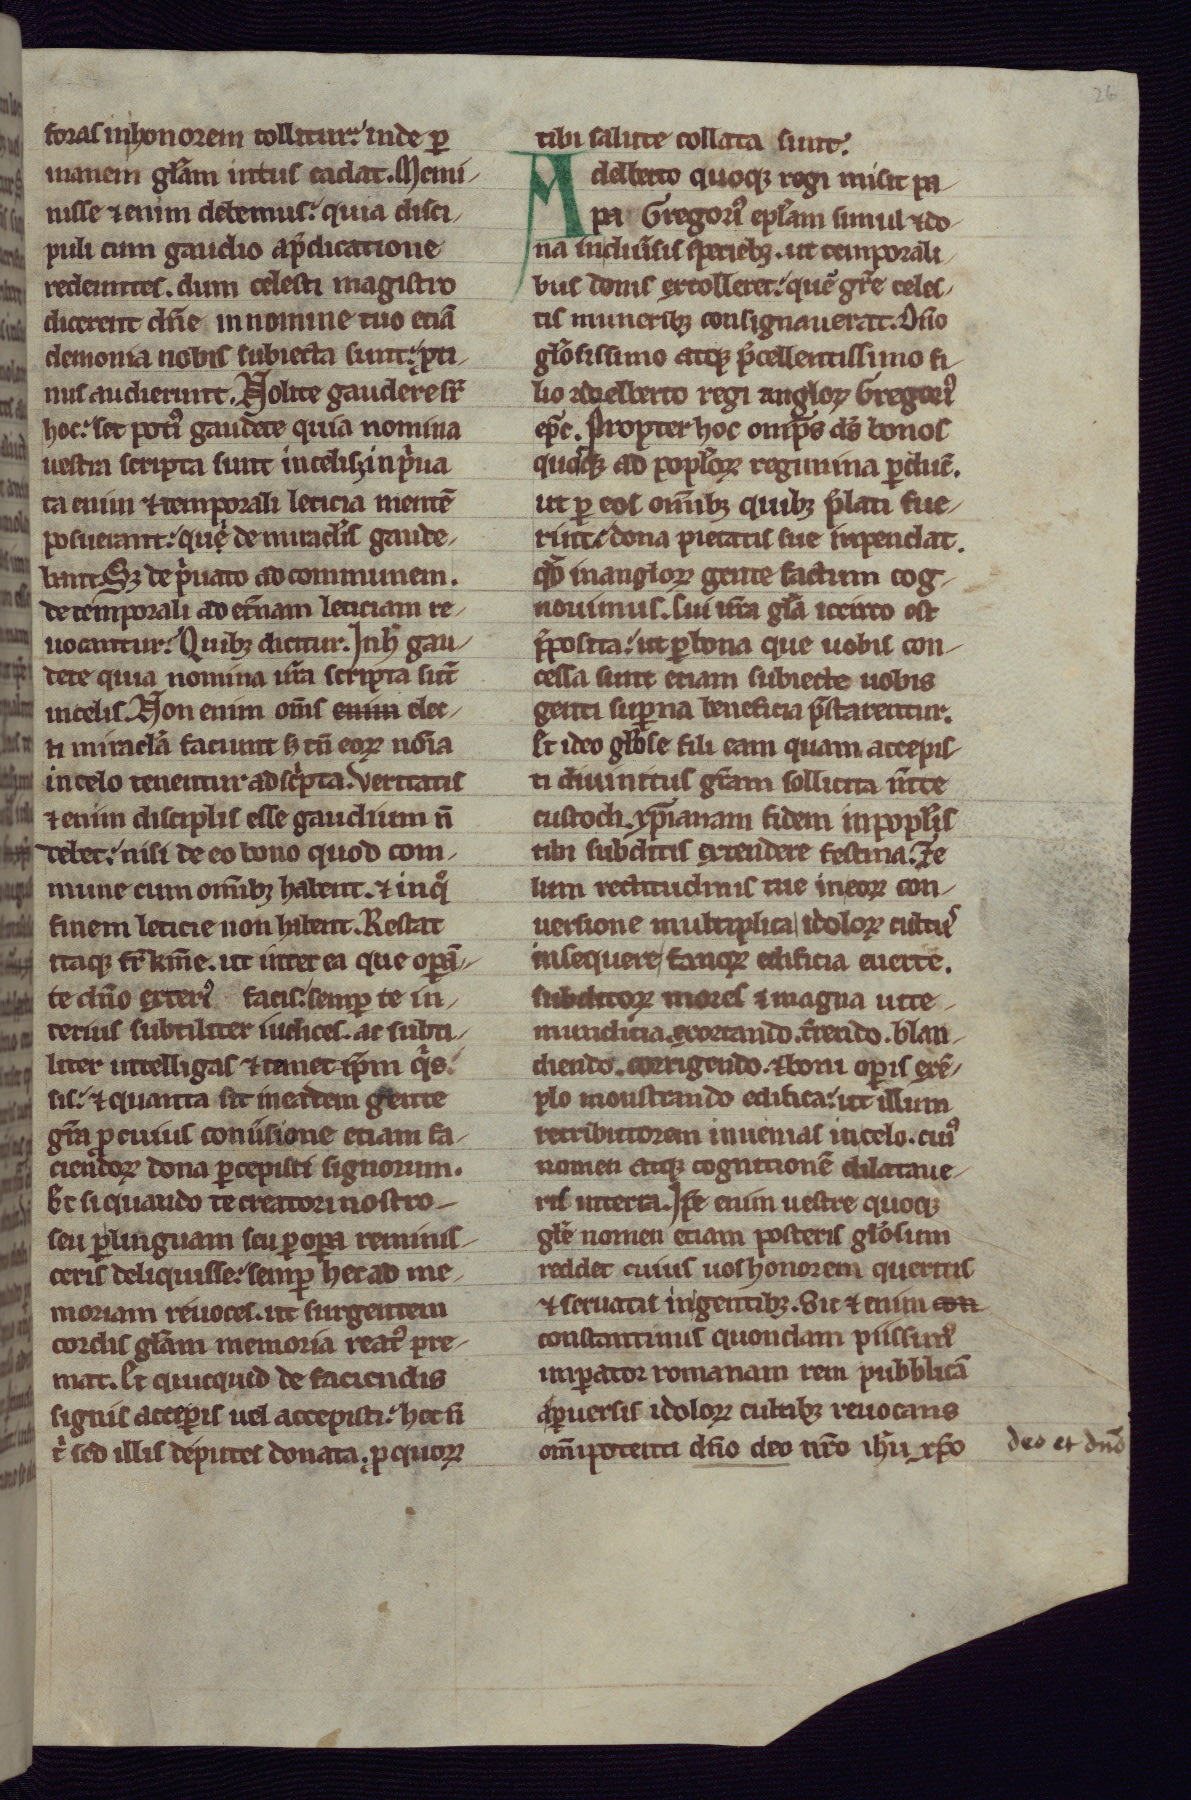 26
foras inhonorem tollitur: inde ꝑ
inanem gl̄am intus cadat. Memi-
nisse ⁊enim debemus: quia disci-
puli cum gaudio ap̄dicatione
redeuntes. dum celesti magistro
dicerent dn̄e innomine tuo etiā
demonia nobis subiecta sunt: ꝓti-
nus audierunt. Nolite gaudere sr̄
hoc: set poti᷒ gaudete quia nomina
uestra scripta sunt incelis; inpͥua
ta enim ⁊temporali leticia mentē
posuerant: que de miracl̄is gaude-
bant. Sꝫ de pͥuato ad communem.
de temporali ad et̄nam leticiam re-
uocantur: Quibꝫ dicitur. Inh̄ gau-
dete quia nomina ur̄a scripta sūt
incelis. Non enim om̄s enim elec-
ti miracl̄a faciunt sꝫ tn̄ eoꝝ no̅ia
incelo tenentur adscͥpta. Veritatis
⁊enim discipl̄is esse gaudium n̄
debet: nisi de eo bono quod com-
mune cum omībꝫ habent. ⁊ inqͦ
finem leticie non habent. Restat
itaqꝫ fr̄ km̄e. ut inter ea que opā-
te dn̄o exteri᷒ facis: semꝑ te in-
terius subtiliter iudices. ac subti-
liter intelligas ⁊temet ip̄m qͥs
sis: ⁊quanta sit ineadem gente
gr̄a ꝓ cuius conu̅sione etiam fa-
ciendoꝝ dona ꝑcepisti signorum.
Et si quando te creatori nostro-
seu ꝑlinguam seu ꝑ oꝑa reminis-
ceris deliquisse: semꝑ hec ad me-
moriam reuoces. ut surgentem
cordis gl̄am memoria reat᷒ pre-
mat. Et quicquid de faciendis
signis acceꝑis uel accepisti: hec n̄
tͥ sed illis deputes donata. ꝓ quoꝝ
tibi salute collata sunt.
Adelberto quoqꝫ regi misit pa-
pa Gregori᷒ epl̄am simul ⁊do-
na indiu̅sis speciebꝫ. ut temporali-
bus donis extolleret: quē gr̄e celes-
tis muneribꝫ consignauerat. Dn̄o
gl̄osissimo atqꝫ p̄cellentissimo fi-
lio adelberto regi angloꝝ Gregori᷒
ep̄c. Propter hoc omp̄s ds̄ bonos
quosqꝫ ad popl̄oꝝ regimina ꝑducit.
ut ꝑ eos om̄ibꝫ quibꝫ p̄lati fue-
rint: dona pietatis sue inpendat.
qd̄ inangloꝝ gente factum cog-
nouimus. sui ur̄a gl̄a iccirco est
p̄posita: ut ꝑ bona que uobis con-
cessa sunt etiam subiecte uobis
genti suꝑna beneficia p̄starentur.
Et ideo gl̄ose fili eam quam accepis-
ti diuinitus gr̄am sollicita m̄te
custodi. xp̄ianam fidem inpopl̄is
tibi subditis extendere festina. Ze
lum rectitudinis tue ineoꝝ con-
uersione multiplica idoloꝝ cult᷒
insequere fanoꝝ edificia euerte.
subditoꝝ mores ⁊ magna uite-
mundicia. exortando. t̄rendo. blan-
diendo. corrigendo. ⁊boni oꝑis exē-
plo monstrando edifica: ut illum
retributorem inuenias incelo. cui᷒
nomen atqꝫ cognitionē dilataue-
ris interra. Ip̄e enim uestre quoqꝫ
gl̄e nomen etiam posteris gl̄osum
reddet cuius uos honorem queritis
⁊ seruatis ingentibꝫ. Sic ⁊ enim con
constantinus quondam piissim᷒
imꝑator romanam rem pubblicā
aꝑuersis idoloꝝ cultibꝫ reuocans
om̄ipotenti dn̄o deo nr̄o ih̄u xp̄o
deo et dn̄o